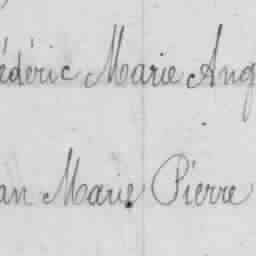 édéric Marie Ang
an Marie Pierre